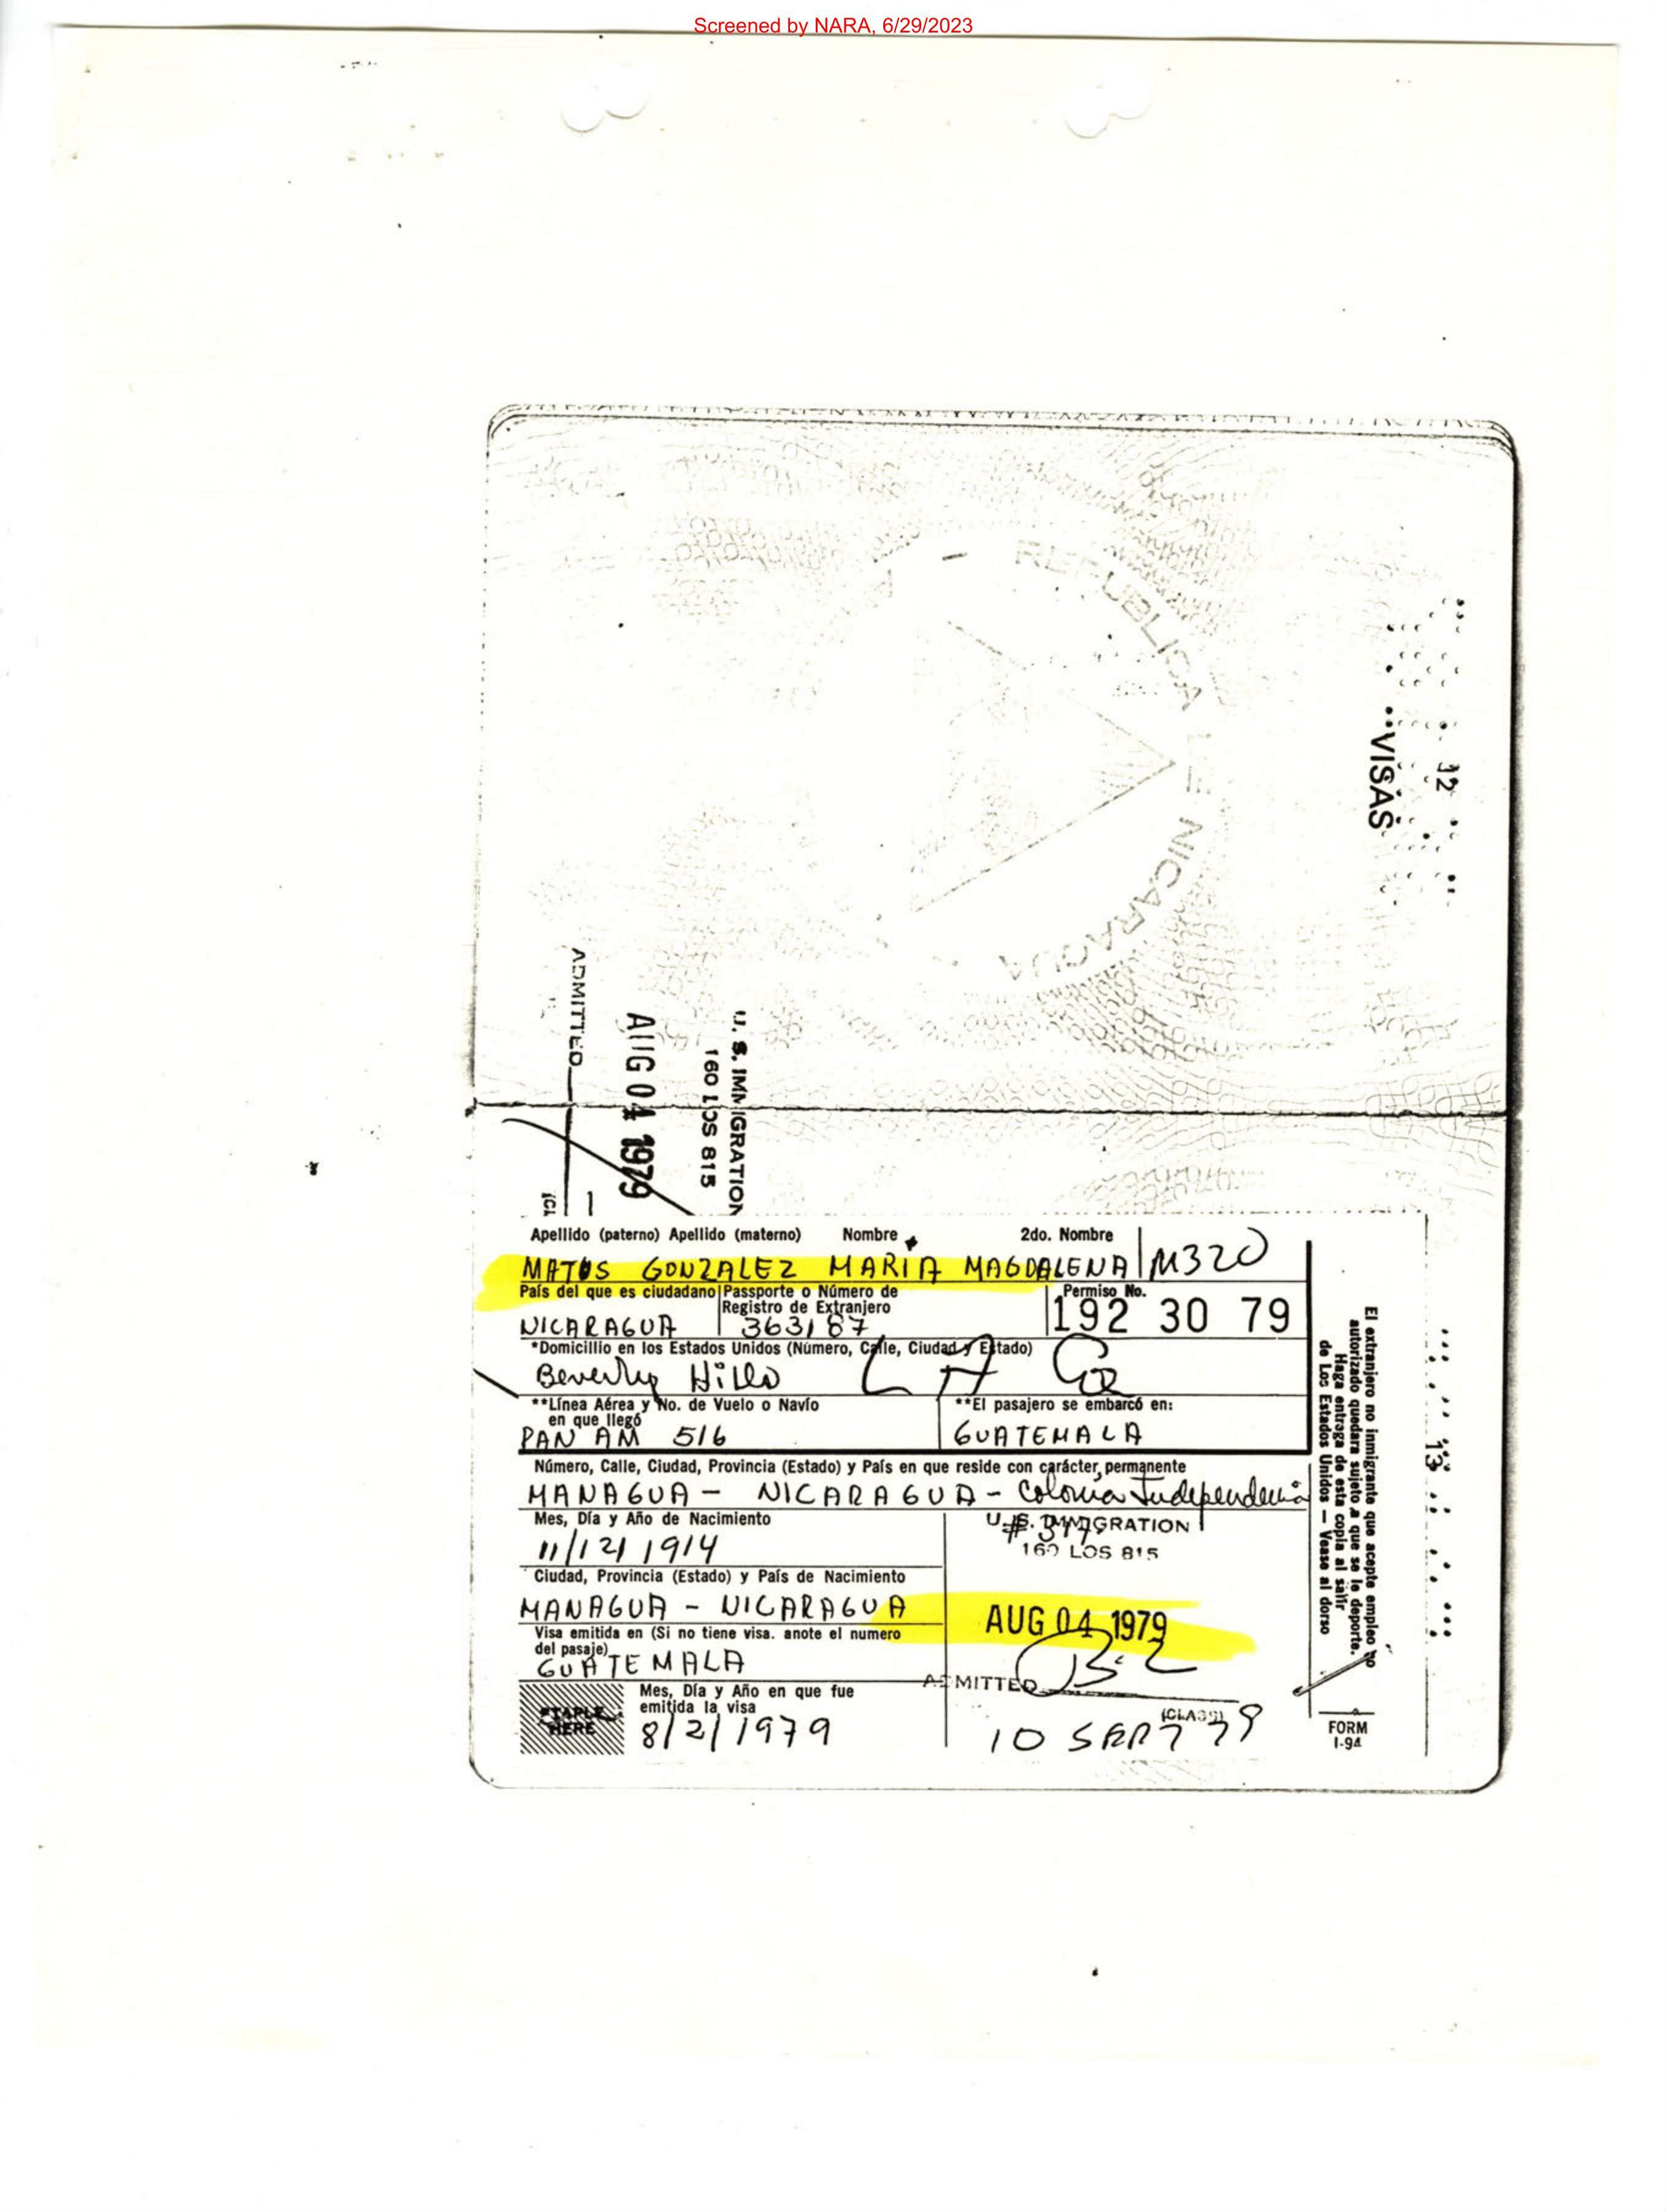 Screened by NARA, 6/29/2023
32
VISAS
REPUBLICA DE NICARAGUA
U. S. IMMIGRATION
160 LOS 815
AUG 04 1979
ADMITTED
Apellido (paterno) Apellido (materno) Nombre 2do. Nombre
MATUS GONZALEZ MARIA MAGDALENA M320
País del que es ciudadano Passporte o Número de Registro de Extranjero Permiso No.
NICARAGUA 363187 192 30 79
*Domicillio en los Estados Unidos (Número, Calle, Ciudad y Estado)
Beverly Hills LA Ca
**Línea Aérea y No. de Vuelo o Navío en que llegó **El pasajero se embarcó en:
PAN AM 516 GUATEMALA
Número, Calle, Ciudad, Provincia (Estado) y País en que reside con carácter permanente
MANAGUA - NICARAGUA - Colonia Independencia
Mes, Día y Año de Nacimiento
11/12/1914
U.S. IMMIGRATION
160 LOS 815
Ciudad, Provincia (Estado) y País de Nacimiento
MANAGUA - NICARAGUA
AUG 04 1979
Visa emitida en (Si no tiene visa. anote el numero
del pasaje)
GUATEMALA
ADMITTED
(CLASS)
STAPLE
HERE
Mes, Día y Año en que fue
emitida la visa
8/2/1979
10 79
El extranjero no inmigrante que acepte empleo no
autorizado quedara sujeto a que se le deporte.
Haga entrega de esta copia al salir
de Los Estados Unidos — Vease al dorso
FORM
I-94
13